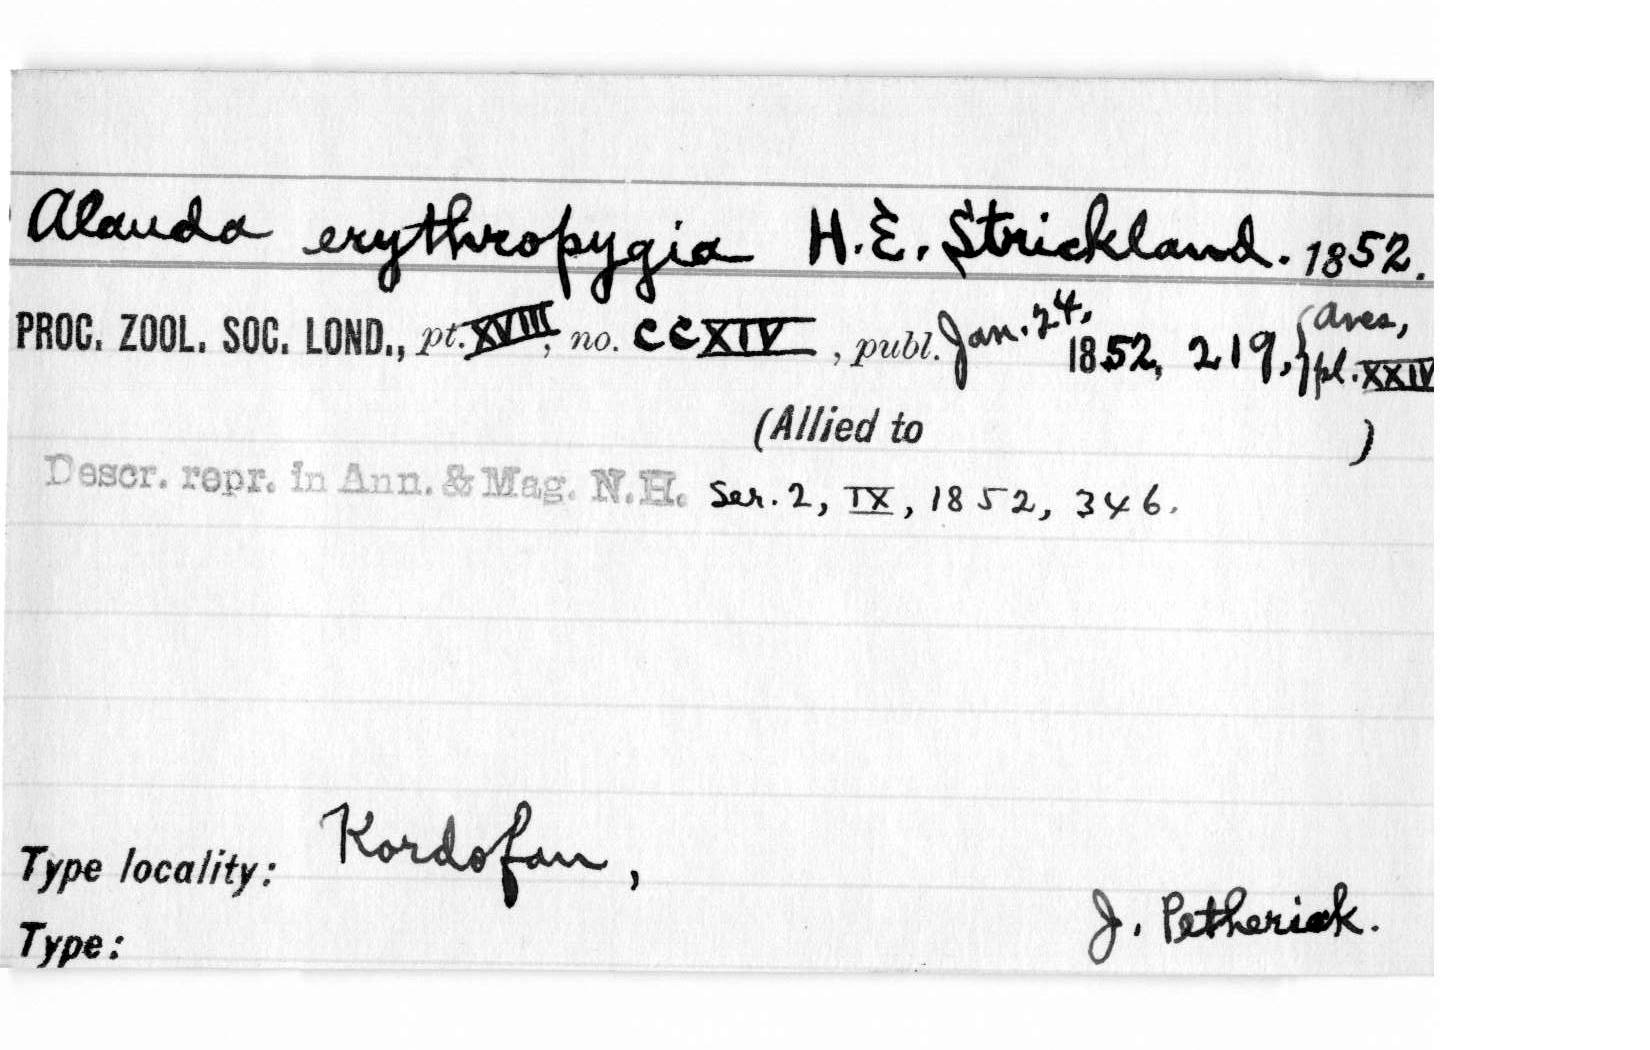 Alauda erythropygia H.E. Strickland. 1852.
PROC. ZOOL. SOC. LOND., pt. XVIII, no. CCXIV, publ. Jan. 24, 1852, 219, { Aves, pl. XXIV
(Allied to )
Descr. repr. in Ann. & Mag. N.H. Ser. 2, IX, 1852, 346.
Type locality: Kordofan,
J. Petherick.
Type: